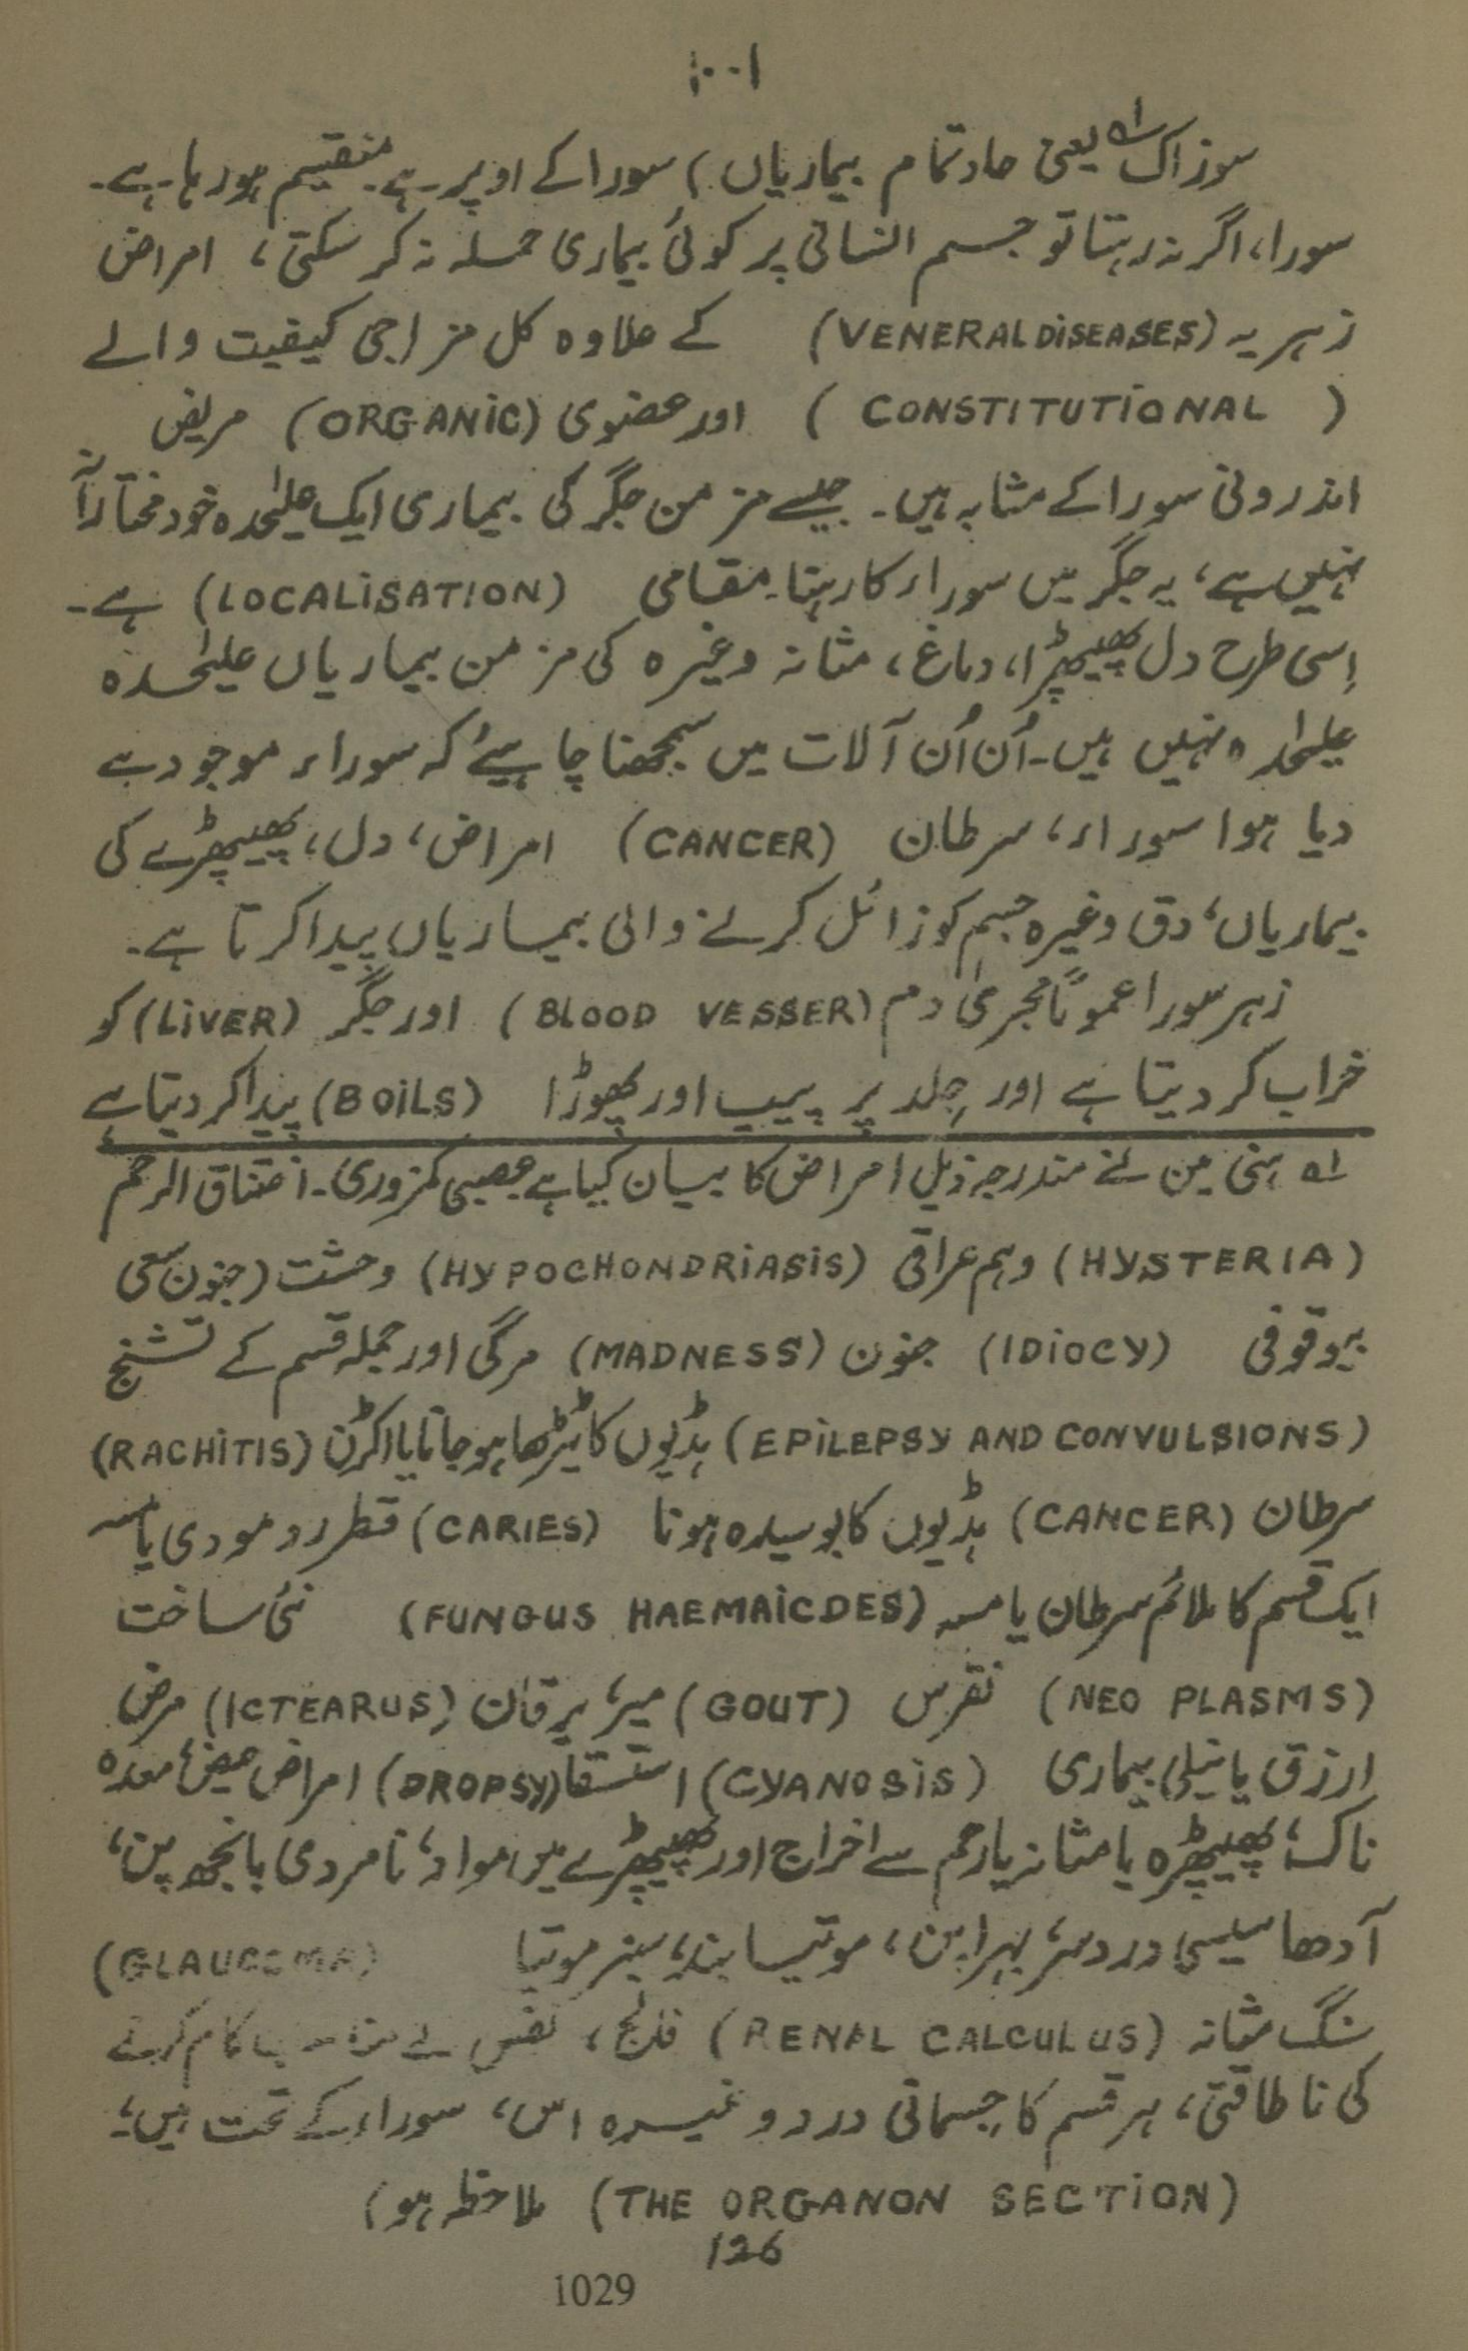 ۱۰۰۱
سوزاک ؎۱ یعنی حاد تمام بیماریاں) سورا کے اوپر ہے۔ منقسیم ہو رہا ہے۔
سورا، اگر نہ رہتا تو جسم انسانی پر کوئی بیماری حملہ نہ کر سکتی، امراض
زہریہ (VENERAL DISEASES) کے علاوہ کل مزاجی کیفیت والے
(CONSTITUTIONAL) اور عضوی (ORGANIC) مریض
اندرونی سورا کے مشابہ ہیں۔ جیسے مزمن جگر کی بیماری ایک علیٰحدہ خود مختارانہ
نہیں ہے، یہ جگر میں سوراء کا رہتا۔ مقامی (LOCALISATION) ہے۔
اِسی طرح دل پھیپھڑا، دماغ، مثانہ وغیرہ کی مزمن بیماریاں علیٰحدہ
علیٰحدہ نہیں ہیں۔ اُن اُن آلات میں سمجھنا چاہیئے کہ سوراء موجود ہے
دیا ہوا سوراء، سرطان (CANCER) امراض، دل، پھیپھڑے کی
بیماریاں، دق وغیرہ جسم کو زائل کرنے والی بیماریاں پیدا کرتا ہے۔
زہر سورا عموماً مجریٰ دم (BLOOD VESSER) اور جگر (LIVER) کو
خراب کر دیتا ہے اور جِلد پر پیپ اور پھوڑا (BOILS) پیدا کر دیتا ہے
؎۱ ہنی مین نے مندرجہ ذیل امراض کا بیان کیا ہے عصبی کمزوری۔ اختناق الرحم
(HYSTERIA) وہم عراقی (HYPOCHONDRIASIS) وحشت (جنون سعی
بیوقوفی (IDIOCY) جنون (MADNESS) مرگی اور جملہ قسم کے تشنج
(EPILEPSY AND CONVULSIONS) ہڈیوں کا ٹیڑھا ہو جانا یا اکڑن (RACHITIS)
سرطان (CANCER) ہڈیوں کا بوسیدہ ہونا (CARIES) قطر رد مودی یا مسہ
ایک قسم کا ملائم سرطان یا مسہ (FUNGUS HAEMAICDES) نئی ساخت
(NEO PLASMS) نقرس (GOUT) میر، یرقان (ICTEARUS) مرض
ارزق یا نیلی بیماری (CYANOSIS) استسقا (DROPSY) امراض حیض، معدہ
ناک، پھیپھڑہ یا مثانہ یا رحم سے اخراج اور پھیپھڑے میں مواد، نامردی بانجھ پن،
آدھا سیسی درد سر، بہراپن، موتیا بند، سبز موتیا (GLAUCOMA)
سنگ مثانہ (RENAL CALCULUS) فالج، نقص کام کرنے
کی ناطاقتی، ہر قسم کا جسمانی درد وغیرہ اس، سوراء کے تحت ہیں،
(THE ORGANON SECTION) ملاحظہ ہو)
126
1029